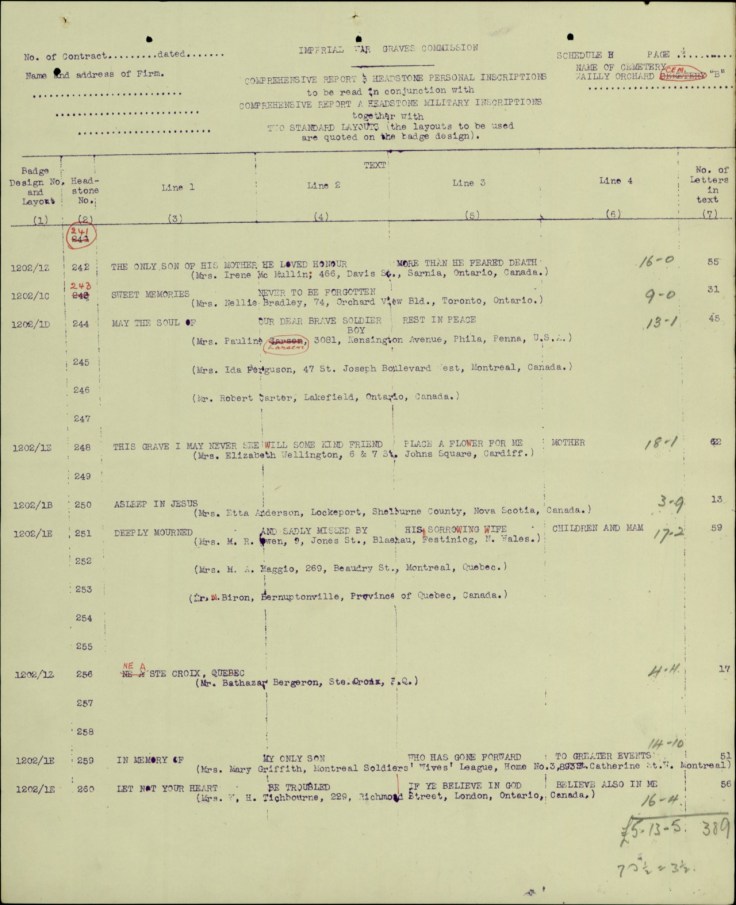 IMPERIAL WAR GRAVES COMMISSION
No. of Contract..........dated.......
SCHEDULE H PAGE 4
Name and address of Firm.
NAME OF CEMETERY
WAILLY ORCHARD CEMETERY CEM. "B"
COMPREHENSIVE REPORT B HEADSTONE PERSONAL INSCRIPTIONS
to be read in conjunction with
COMPREHENSIVE REPORT A HEADSTONE MILITARY INSCRIPTIONS
together with
TWO STANDARD LAYOUTS (the layouts to be used
are quoted on the badge design).
TEXT
Badge Design No. and Layout Head-stone No. Line 1 Line 2 Line 3 Line 4 No. of Letters in text
(1) (2) (3) (4) (5) (6) (7)
241
1202/1Z 242 THE ONLY SON OF HIS MOTHER HE LOVED HONOUR MORE THAN HE FEARED DEATH 16-0 55
(Mrs. Irene Mc Mullin; 466, Davis St., Sarnia, Ontario, Canada.)
1202/1C 243 SWEET MEMORIES NEVER TO BE FORGOTTEN 9-0 31
(Mrs. Nellie Bradley, 74, Orchard View Bld., Toronto, Ontario.)
1202/1D 244 MAY THE SOUL OF OUR DEAR BRAVE SOLDIER BOY REST IN PEACE 13-1 45
(Mrs. Pauline Larsen, 3081, Kensington Avenue, Phila, Penna, U.S.A.)
245
(Mrs. Ida Ferguson, 47 St. Joseph Boulevard West, Montreal, Canada.)
246
(Mr. Robert Carter, Lakefield, Ontario, Canada.)
247
1202/1E 248 THIS GRAVE I MAY NEVER SEE WILL SOME KIND FRIEND PLACE A FLOWER FOR ME MOTHER 18-1 62
(Mrs. Elizabeth Wellington, 6 & 7 St. Johns Square, Cardiff.)
249
1202/1B 250 ASLEEP IN JESUS 3-9 13
(Mrs. Etta Anderson, Lockeport, Shelburne County, Nova Scotia, Canada.)
1202/1E 251 DEEPLY MOURNED AND SADLY MISSED BY HIS SORROWING WIFE CHILDREN AND MAM 17-2 59
(Mrs. M. R. Owen, 9, Jones St., Blaenau, Festiniog, N. Wales.)
252
(Mrs. M. A. Maggio, 269, Beaudry St., Montreal, Quebec.)
253
M. Biron, Bernuptonville, Province of Quebec, Canada.)
254
255
1202/1Z 256 NE A STE CROIX, QUEBEC 4-4 17
(Mr. Bathazar Bergeron, Ste. Croix, P.Q.)
257
258
14-10
1202/1E 259 IN MEMORY OF MY ONLY SON WHO HAS GONE FORWARD TO GREATER EVENTS 51
(Mrs. Mary Griffith, Montreal Soldiers' Wives' League, Home No.3, Catherine St.W. Montreal)
1202/1E 260 LET NOT YOUR HEART BE TROUBLED IF YE BELIEVE IN GOD BELIEVE ALSO IN ME 56
(Mrs. W. H. Tichbourne, 229, Richmond Street, London, Ontario, Canada.)
16-4
£5-13-5. 389